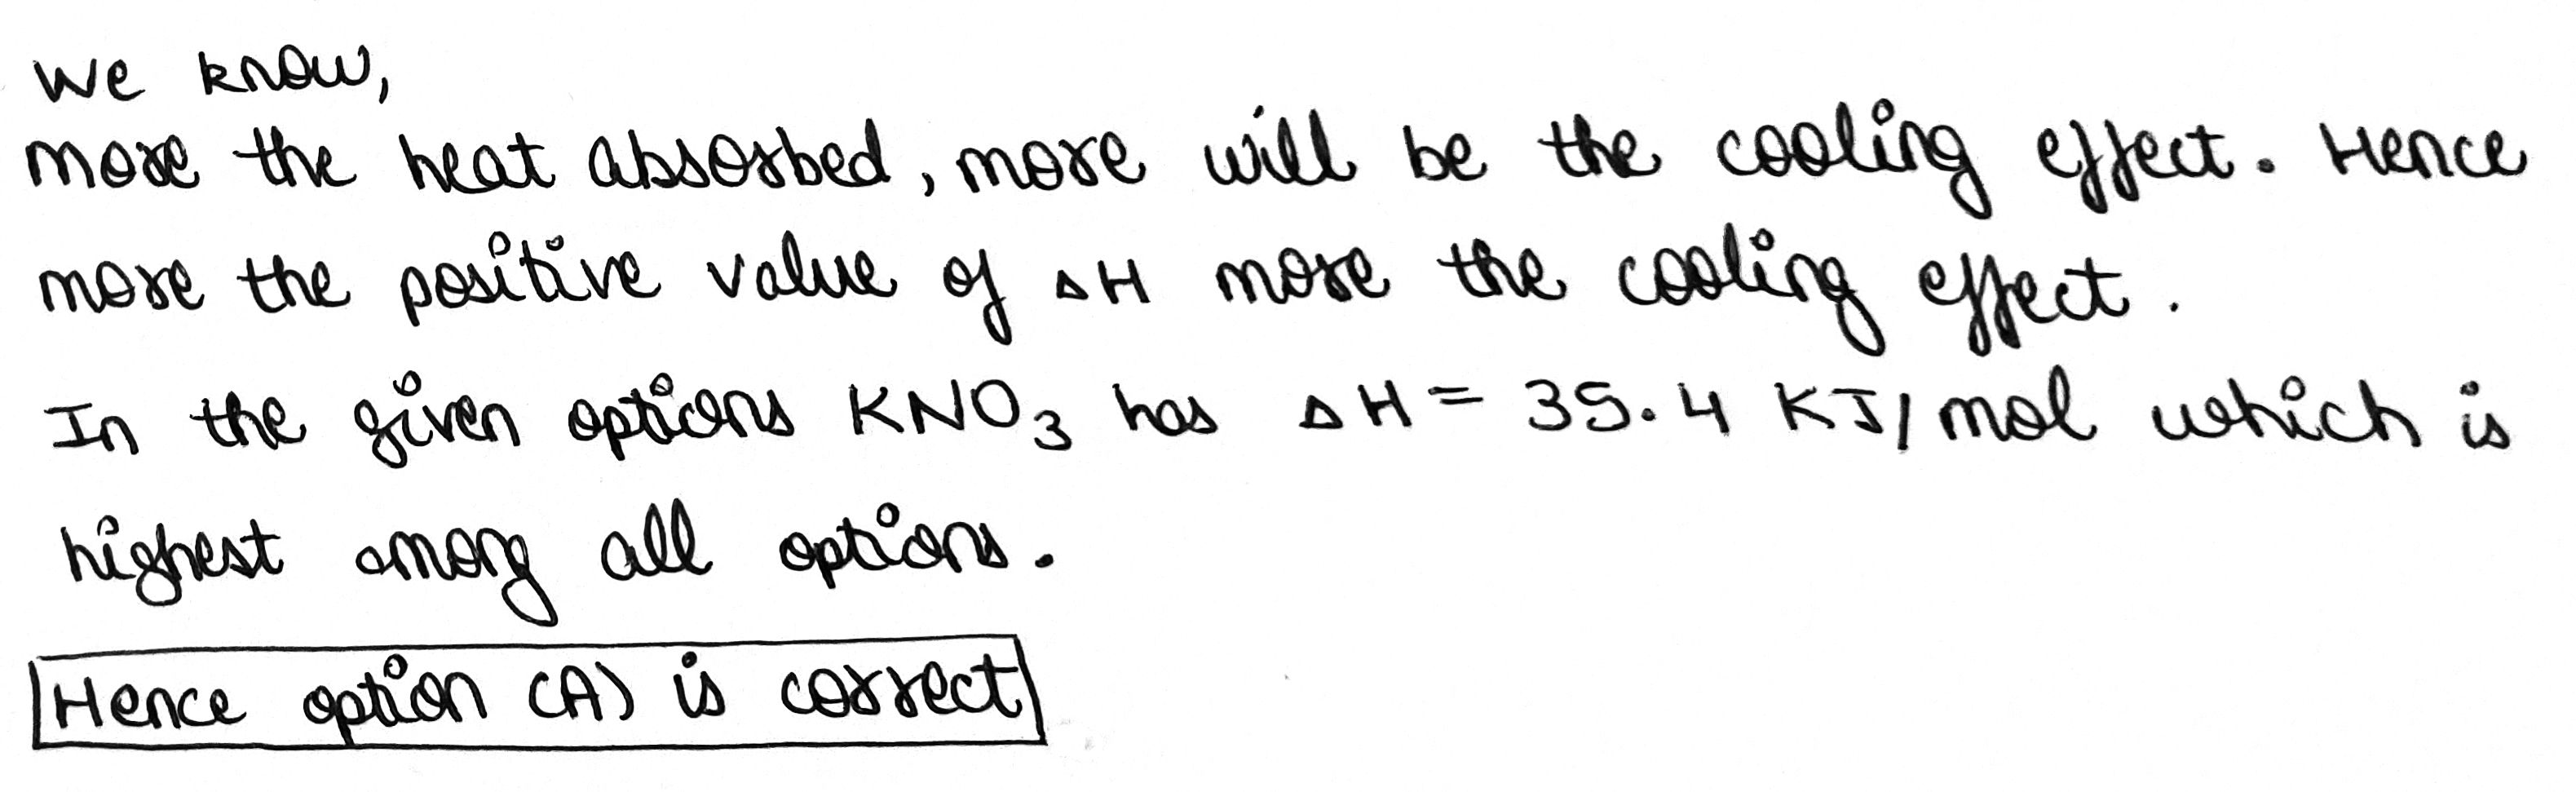 We know,
more the heat absorbed, more will be the cooling effect. Hence
more the positive value of ΔH more the cooling effect.
In the given options KNO₃ has ΔH = 35.4 KJ/mol which is
highest among all options.
Hence option (A) is correct